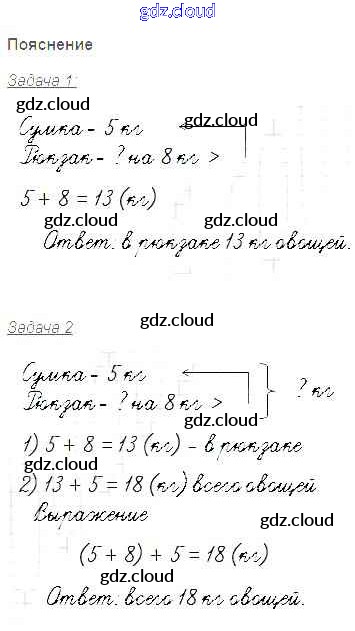 gdz.cloud
Пояснение
Задача 1:
gdz.cloud
Сумка – 5 кг
gdz.cloud
Рюкзак – ? на 8 кг >
5 + 8 = 13 (кг)
gdz.cloud gdz.cloud
Ответ: в рюкзаке 13 кг овощей.
gdz.cloud
Задача 2
gdz.cloud
Сумка – 5 кг
Рюкзак – ? на 8 кг > ? кг
gdz.cloud
1) 5 + 8 = 13 (кг) – в рюкзаке
gdz.cloud
2) 13 + 5 = 18 (кг) всего овощей
Выражение
gdz.cloud
(5 + 8) + 5 = 18 (кг)
gdz.cloud
Ответ: всего 18 кг овощей.
gdz.cloud